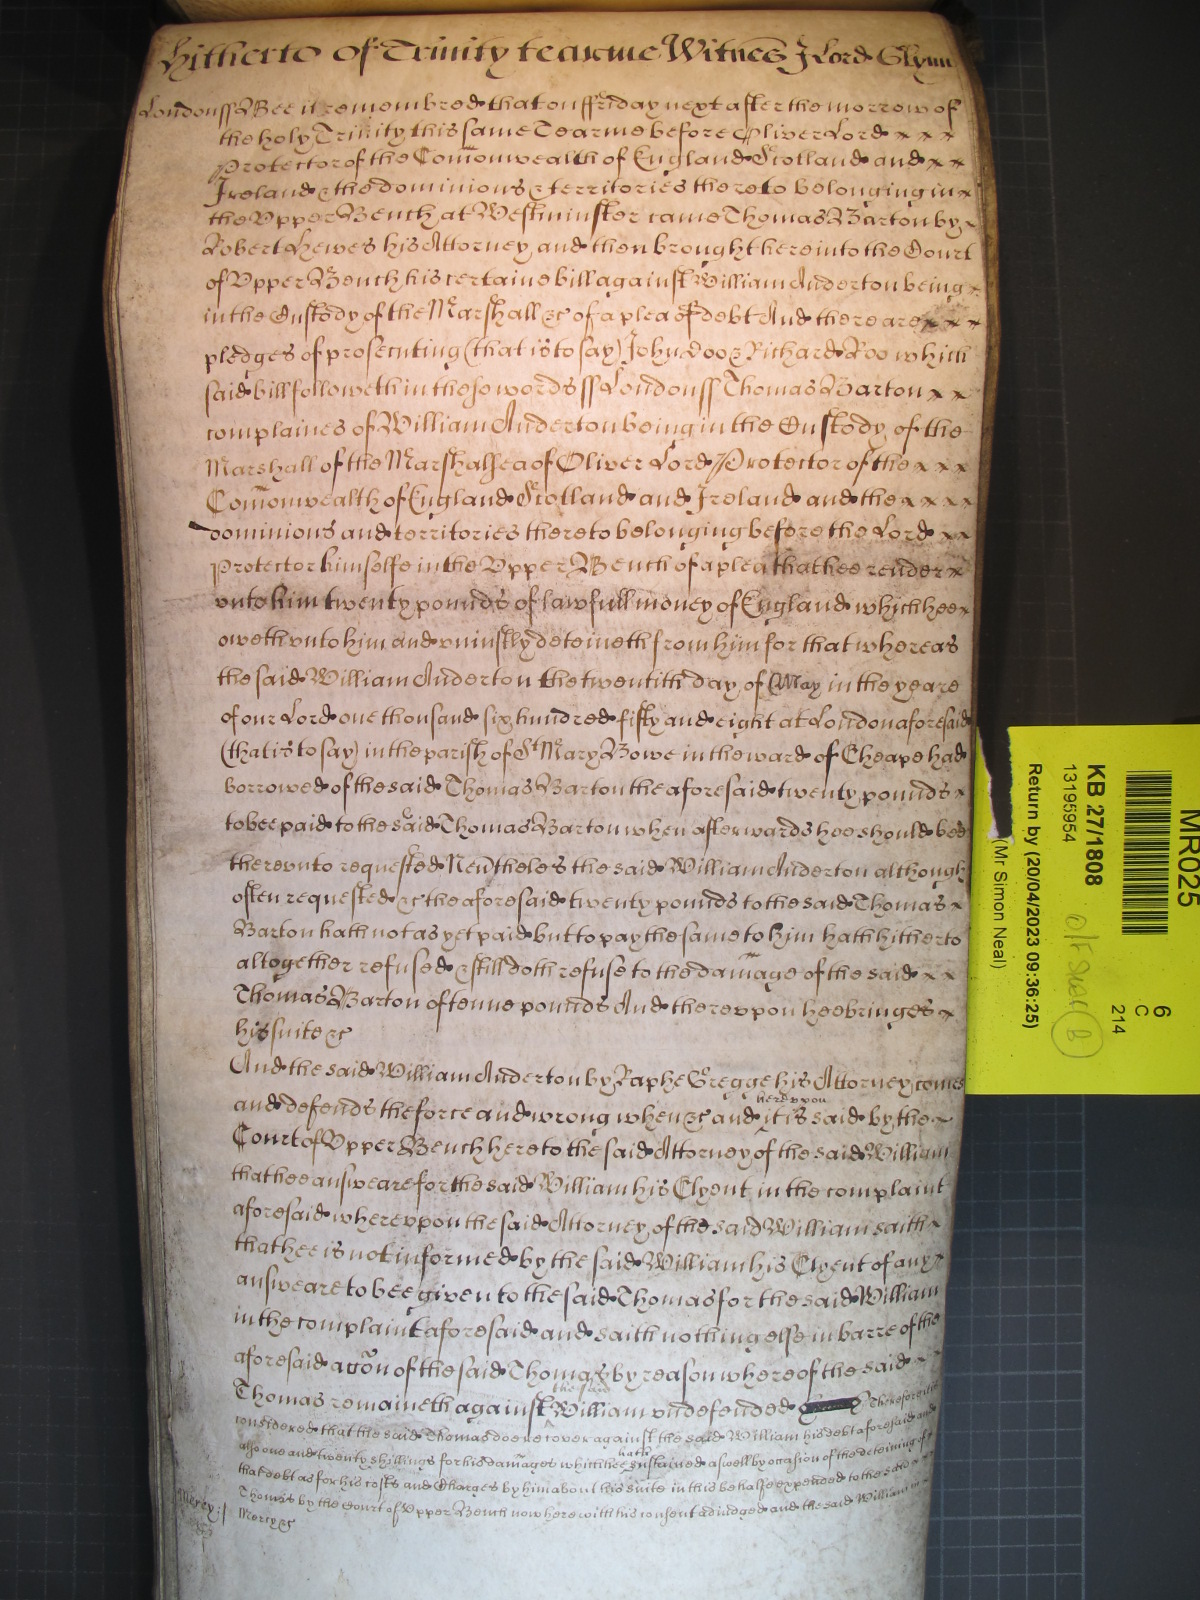 Hitherto Of Trinity tearme Witnes J Lord Glynn
London ss Bee it remembred that on ffriday next after the morrow of
the holy Trinity this same Tearme before Oliver Lord
Protector of the Comonwealth of England Scotland and
Ireland & the dominions & territories thereto belonging in
the Vpper Bench at Westminster came Thomas Barton by
Robert Hewes his Attorney and then brought here into the Court
of Vpper Bench his certaine bill against William Anderton being
in the Custody of the Marshall &c of a plea of debt And there are
pledges of prosecuting (that is to say) John Doo & Richard Roo which
said bill followeth in these words ss London ss Thomas Barton
complaines of William Anderton being in the Custody of the
Marshall of the Marshalsea of Oliver Lord Protector of the
Comonwealth of England Scotland and Ireland and the
dominions and territories thereto belonging before the Lord
Protector himselfe in the Vpper Bench of a plea that hee render
vnto him twenty pounds of lawfull money of England which hee
oweth vnto him and vniustly deteineth from him for that whereas
the said William Anderton the twentith day of May in the yeare
of our Lord one thousand six hundred fifty and eight at London aforesaid
(that is to say) in the parish of St Mary Bowe in the ward of Cheape had
borrowed of the said Thomas Barton the aforesaid twenty pounds
to bee paid to the said Thomas Barton when afterwards hee should bee
therevnto requested Nevtheles the said William Anderton although
often requested &c the aforesaid twenty pounds to the said Thomas
Barton hath not as yet paid but to pay the same to him hath hitherto
altogether refused & still doth refuse to the damage of the said
Thomas Barton of tenne pounds And therevpon hee bringes
his suite &c
And the said William Anderton by Raphe Gregge his Attorney comes
and defends the force and wrong when &c and herevpon it is said by the
Court of Vpper Bench here to the said Attorney of the said William
that hee answeare for the said William his Clyent in the complaint
aforesaid wherevpon the said Attorney of the said William saith
that hee is not informed by the said William his Clyent of any
answeare to bee given to the said Thomas for the said William
in the complaint aforesaid and saith nothing else in barre of the
aforesaid accon of the said Thomas by reason whereof the said
Thomas remaineth against the said William vndefended Therefore it is
considered that the said Thomas doe recover against the said William his debt aforesaid and
also one and twenty shillings for his damages which hee hath sustained aswell by occasion of the deteining of
that debt as for his costs and Charges by him about his suite in this behalfe expended to the said
Thomas by the Court of Vpper Bench now here with his consent adiudged and the said William in
Mercy &c
Mercy
MR025
6
C
214
KB 27/1808
13195954
Return by (20/04/2023 09:36:25)
(Mr Simon Neal)
B